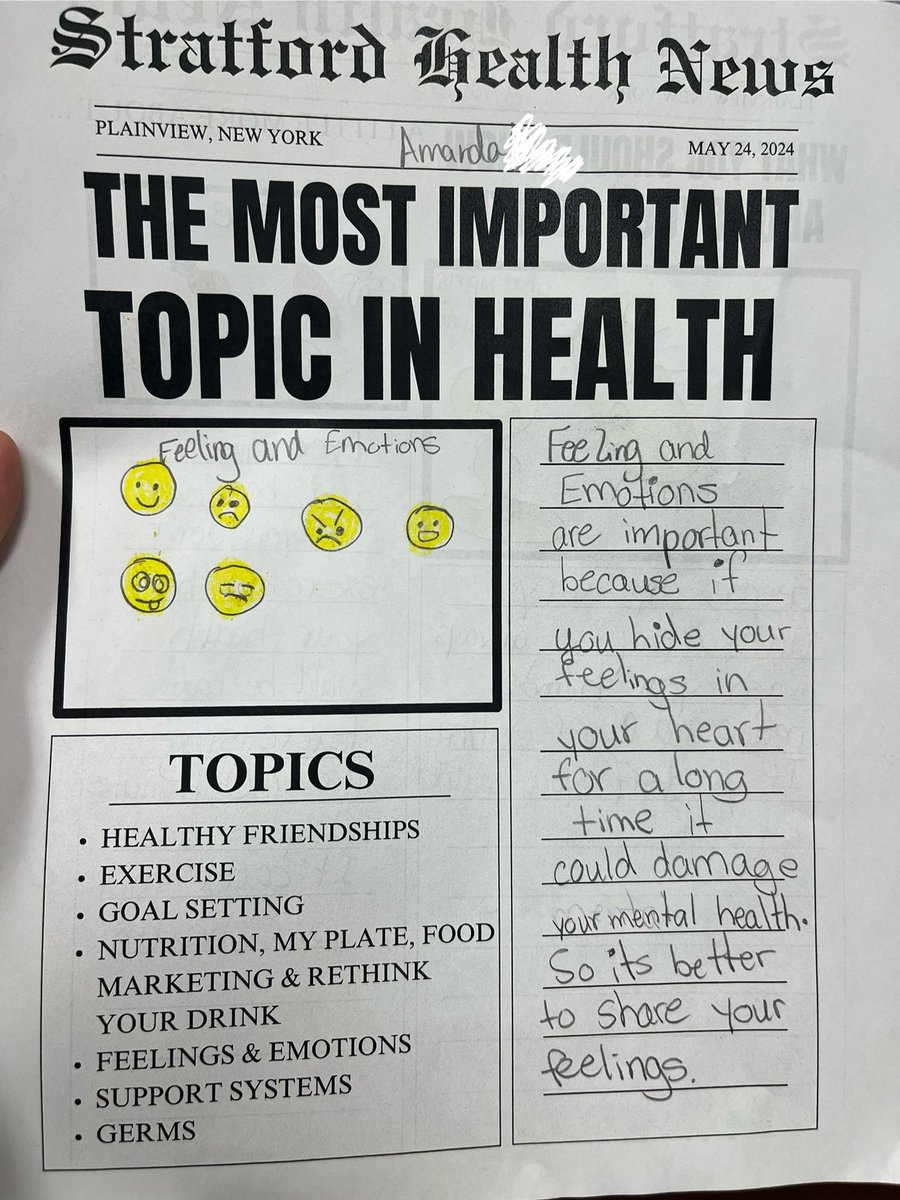 Stratford Health News
PLAINVIEW, NEW YORK
Amanda
MAY 24, 2024
THE MOST IMPORTANT
TOPIC IN HEALTH
Feeling and Emotions
TOPICS
• HEALTHY FRIENDSHIPS
• EXERCISE
• GOAL SETTING
• NUTRITION, MY PLATE, FOOD
MARKETING & RETHINK
YOUR DRINK
• FEELINGS & EMOTIONS
• SUPPORT SYSTEMS
• GERMS
Feeling and
Emotions
are important
because if
you hide your
feelings in
your heart
for a long
time it
could damage
your mental health.
So its better
to share your
feelings.